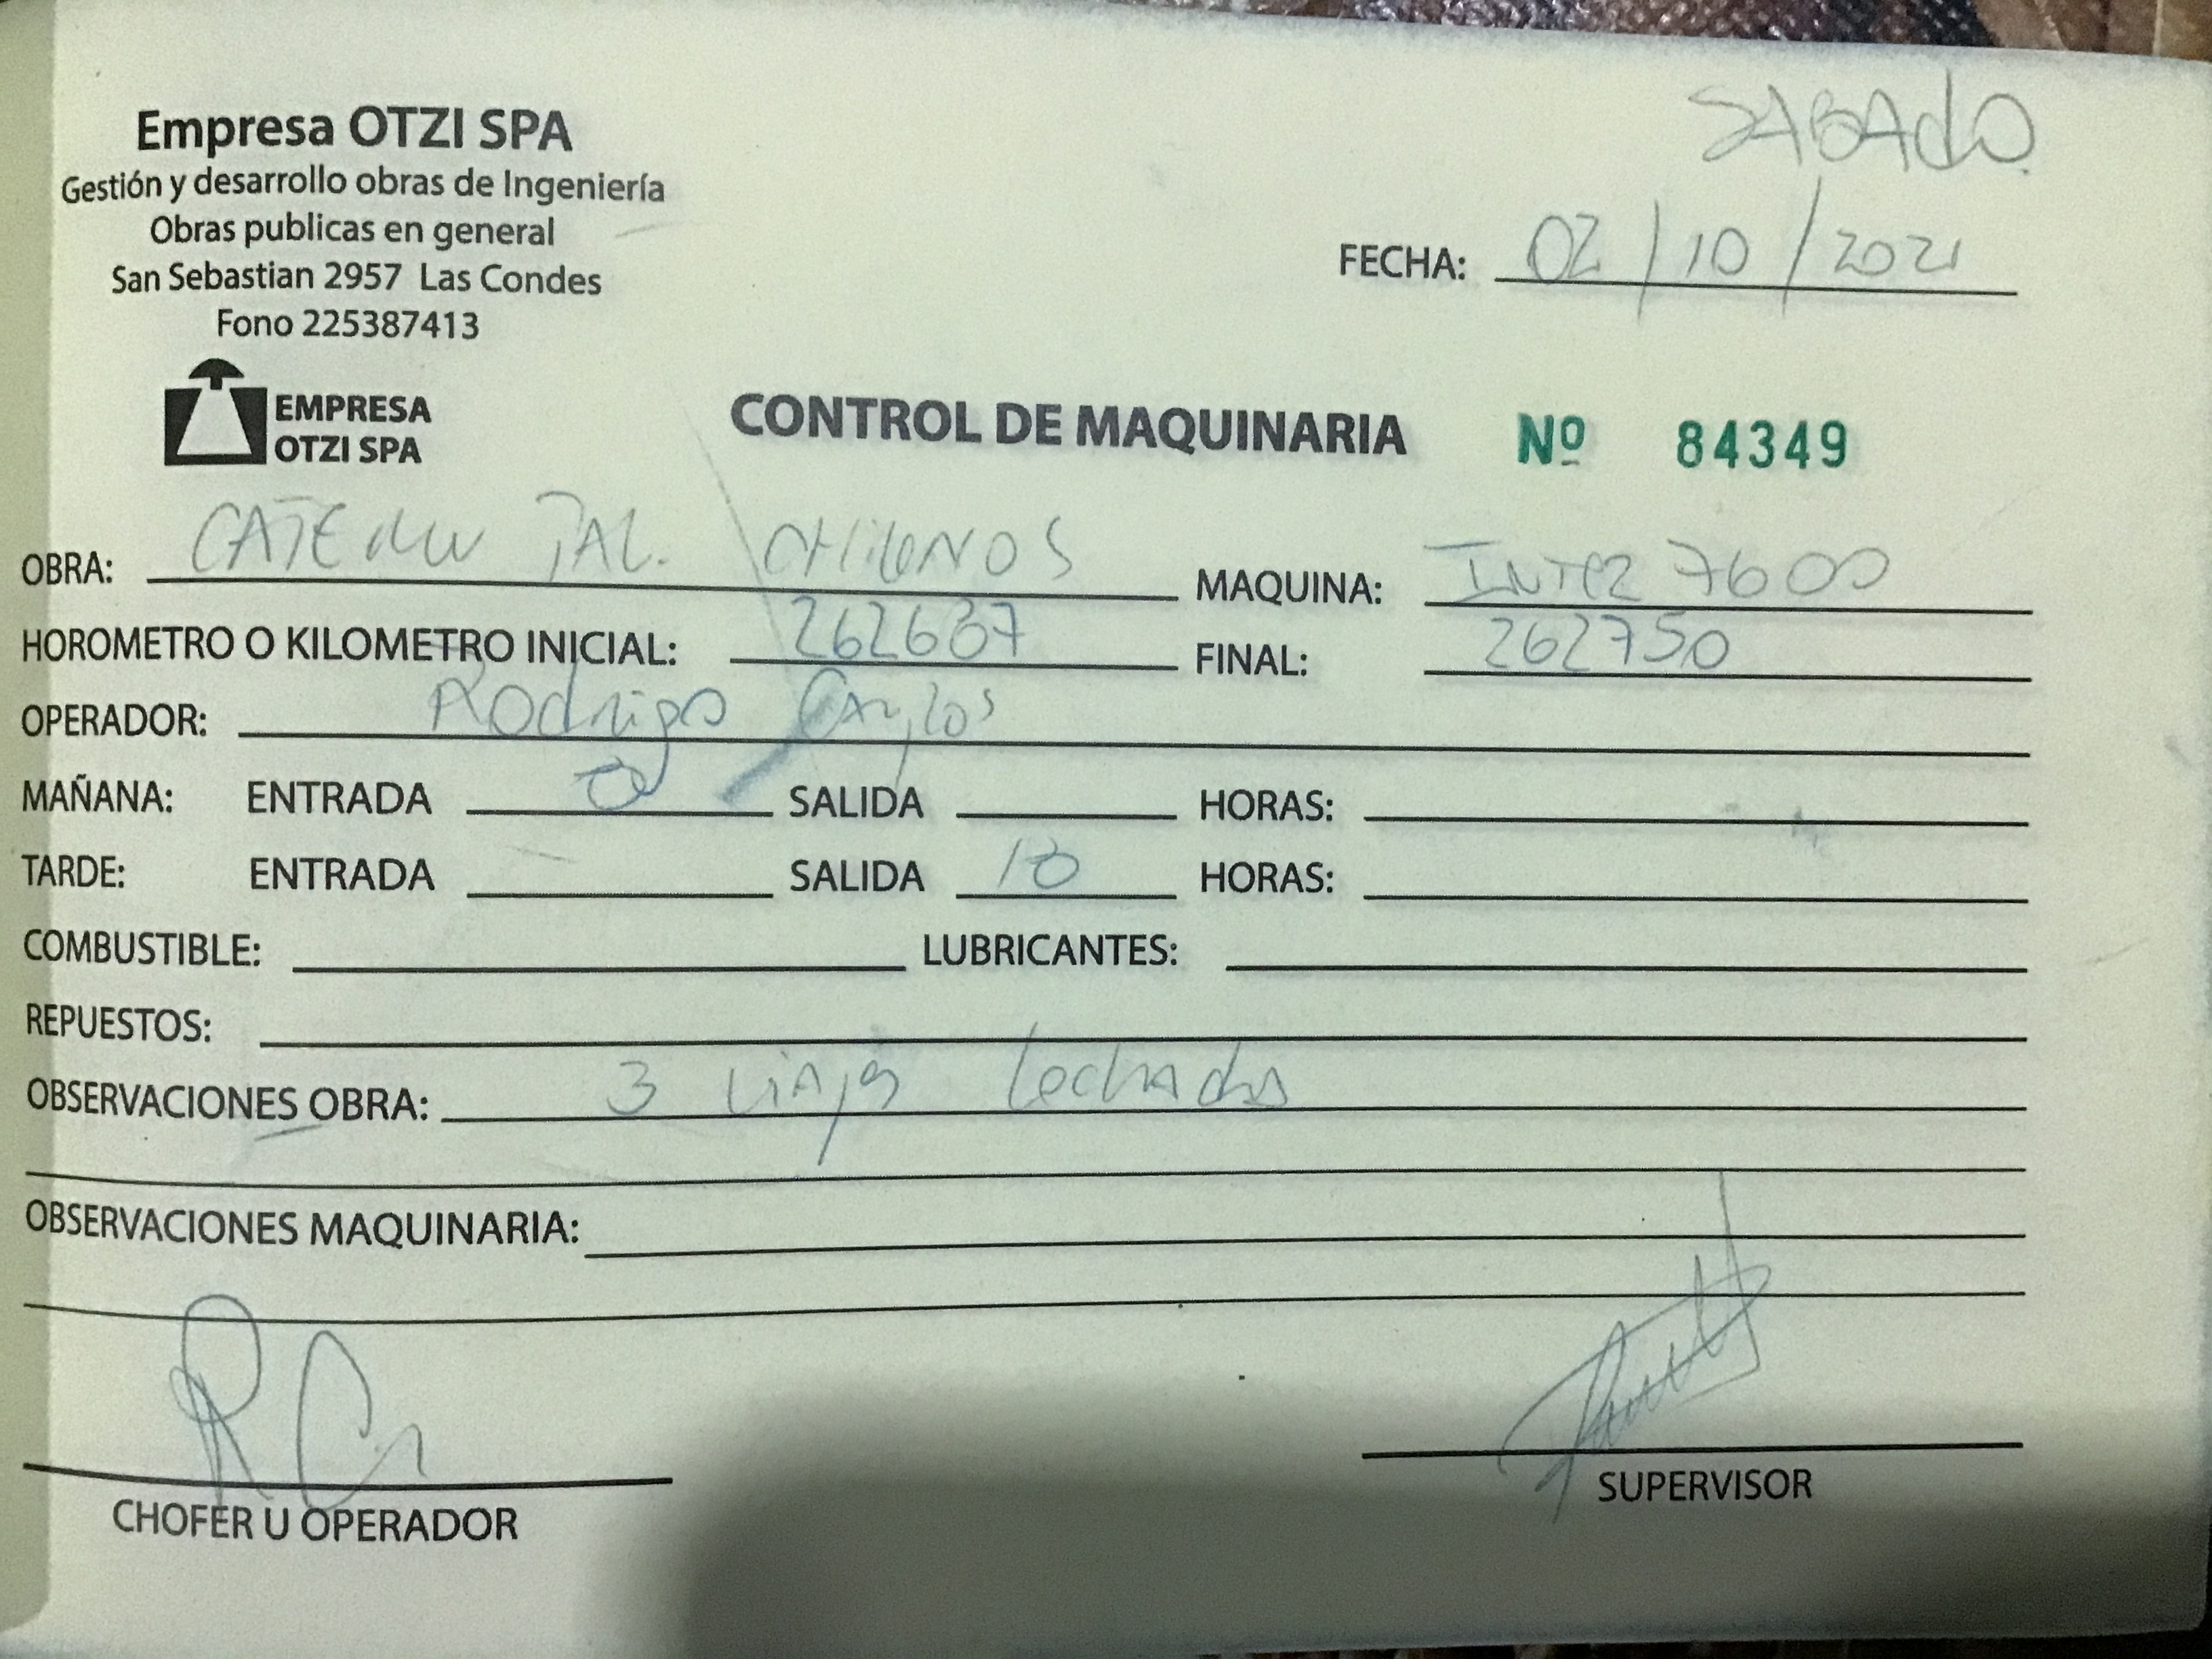 SABAdO
Empresa OTZI SPA
Gestión y desarrollo obras de Ingeniería
Obras publicas en general
San Sebastian 2957 Las Condes
Fono 225387413
FECHA: 02/10/2021
EMPRESA
OTZI SPA
CONTROL DE MAQUINARIA Nº 84349
OBRA: CATEMU TAL. CHILENOS MAQUINA: INTER 7600
HOROMETRO O KILOMETRO INICIAL: 262637 FINAL: 262750
OPERADOR: Rodrigo
MAÑANA: ENTRADA SALIDA HORAS:
TARDE: ENTRADA SALIDA HORAS:
COMBUSTIBLE: LUBRICANTES:
REPUESTOS:
OBSERVACIONES OBRA: 3 viajes
OBSERVACIONES MAQUINARIA:
CHOFER U OPERADOR
SUPERVISOR